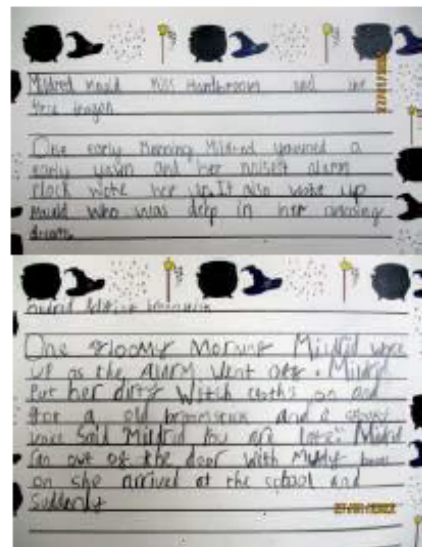 Mildred Maud Miss Hardbroom and the
fire dragon
One early Morning Mildred yawned a
early yawn and her noisest alarm
clock woke her up. It also woke up
Maud who was deep in her amasing
dream.
27/01/2022
One gloomy Morning Mildrid woke
up as the alarm went off. Mildrid
Put her dirty Witch cloths on and
got a old broomstick and a spooky
voice said "Mildrid You are late". Mildrid
ran out of the door with Muddy boots
on she arrived at the school and
Suddenly
27/01/2022